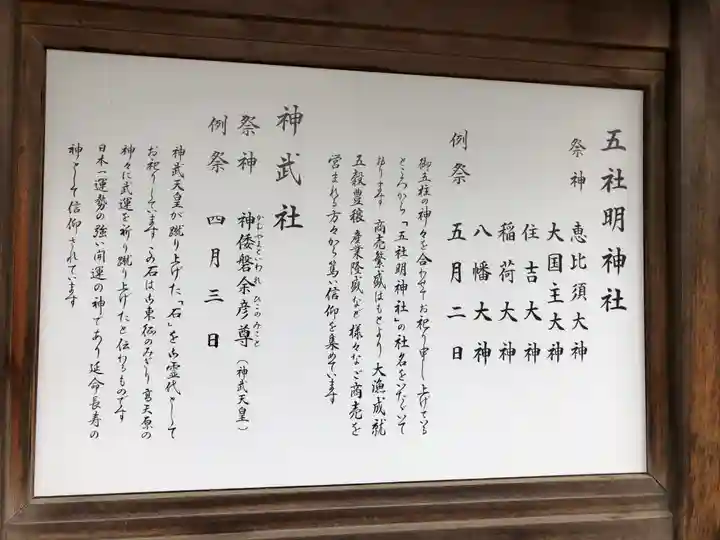 五社明神社
祭神 恵比須大神
大国主大神
住吉大神
稲荷大神
八幡大神
例祭 五月二日
御五柱の神々を合わせてお祀り申し上げている
ところから「五社明神社」の社名をいただいて
おります 商売繁盛はもとより 大漁成就
五穀豊穣 産業隆盛など 様々なご商売を
営まれる方々から篤い信仰を集めています
神武社
祭神 神倭磐余彦尊(神武天皇)
かむやまといわれ ひこのみこと
例祭 四月三日
神武天皇が蹴り上げた「石」を御霊代として
お祀りしています この石は御東征のみぎり高天原の
神々に武運を祈り蹴り上げたと伝わるものです
日本一運勢の強い開運の神であり延命長寿の
神として信仰されています